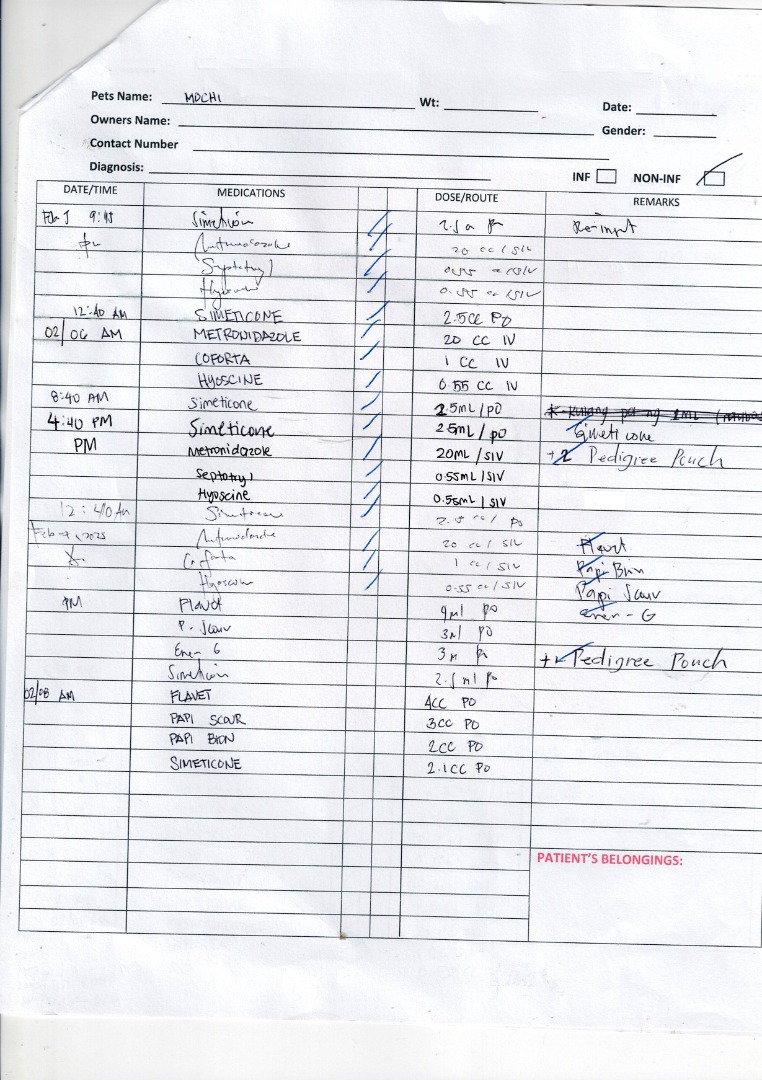 Pets Name: MOCHI Wt: Date:
Owners Name: Gender:
Contact Number
Diagnosis: INF NON-INF
DATE/TIME MEDICATIONS DOSE/ROUTE REMARKS
9:45 Simeticone 2.5
20 cc / SIV
0.55 cc / SIV
0.55 cc / SIV
12:40 AM SIMETICONE 2.5CC PO
02/06 AM METRONIDAZOLE 20 CC IV
COFORTA 1 CC IV
HYOSCINE 0.55 CC IV
8:40 AM Simeticone 2.5mL/PO
4:40 PM Simeticone 2.5mL/PO Simeticone
PM Metronidazole 20mL/SIV +2 Pedigree Pouch
Septotryl 0.55mL/SIV
Hyoscine 0.55mL/SIV
12:40 Am 2.5 cc / PO
Feb 7, 2025 20 cc / SIV Flavet
Coforta 1 cc / SIV Papi Bion
Hyoscine 0.55 cc / SIV Papi Scour
PM Flavet 4ml PO Ener-G
P. Scour 3ml PO
Ener-G 3m Pedigree Pouch
Simeticone 2.5 ml PO
02/08 AM FLAVET 4CC PO
PAPI SCOUR 3CC PO
PAPI BION 2CC PO
SIMETICONE 2.1CC PO
PATIENT'S BELONGINGS: